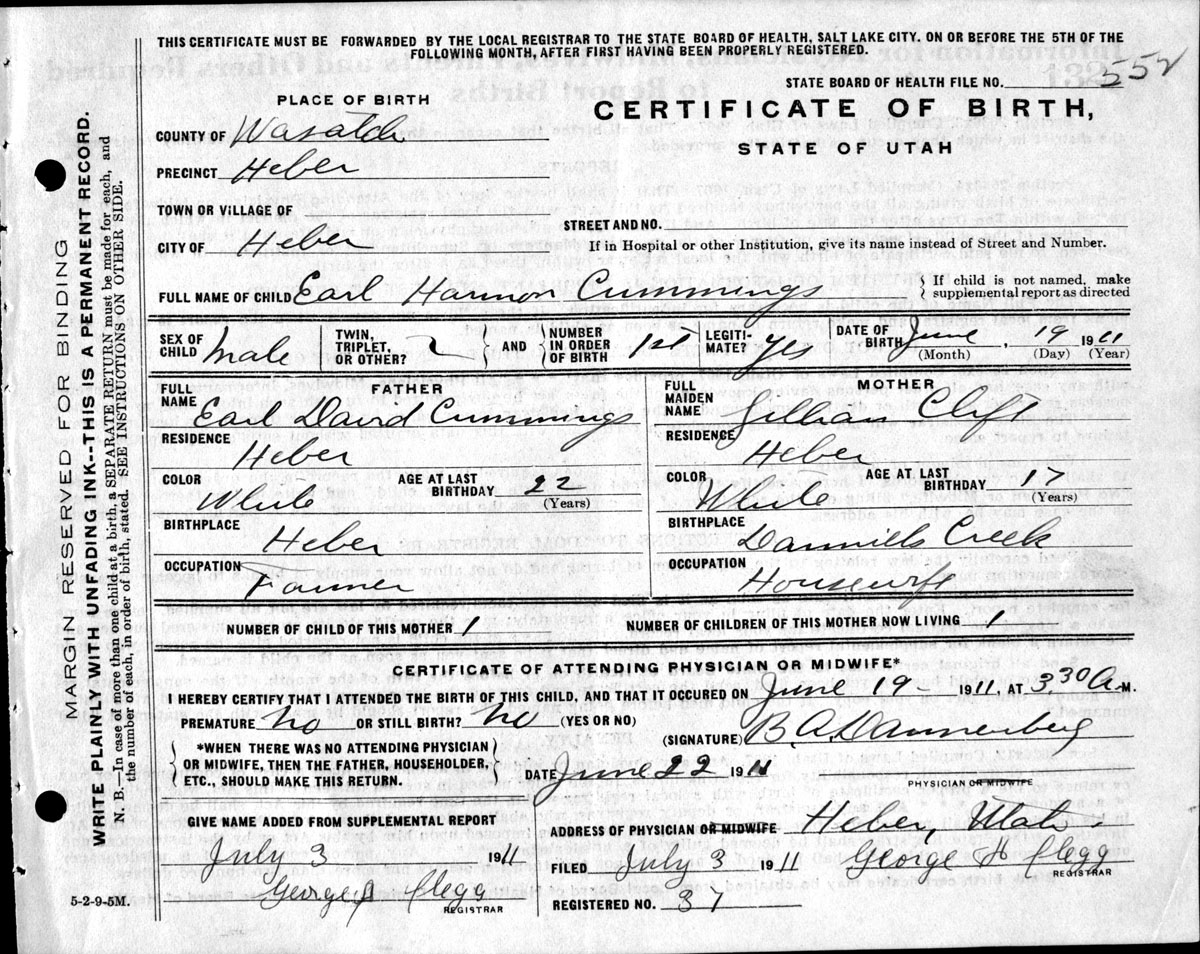 THIS CERTIFICATE MUST BE FORWARDED BY THE LOCAL REGISTRAR TO THE STATE BOARD OF HEALTH, SALT LAKE CITY. ON OR BEFORE THE 5TH OF THE
FOLLOWING MONTH, AFTER FIRST HAVING BEEN PROPERLY REGISTERED.
STATE BOARD OF HEALTH FILE NO. 552
PLACE OF BIRTH
CERTIFICATE OF BIRTH,
STATE OF UTAH
COUNTY OF Wasatch
PRECINCT Heber
TOWN OR VILLAGE OF
STREET AND NO.
CITY OF Heber
If in Hospital or other Institution, give its name instead of Street and Number.
FULL NAME OF CHILD Earl Harmon Cummings
If child is not named, make
supplemental report as directed
SEX OF CHILD male
TWIN, TRIPLET, OR OTHER?
AND
NUMBER IN ORDER OF BIRTH 1st
LEGITI-MATE? yes
DATE OF BIRTH June 19 1911
(Month) (Day) (Year)
FATHER
FULL NAME Earl David Cummings
RESIDENCE Heber
COLOR White
AGE AT LAST BIRTHDAY 22
(Years)
BIRTHPLACE Heber
OCCUPATION Farmer
MOTHER
FULL MAIDEN NAME Lillian Clift
RESIDENCE Heber
COLOR White
AGE AT LAST BIRTHDAY 17
(Years)
BIRTHPLACE Danniels Creek
OCCUPATION Housewife
NUMBER OF CHILD OF THIS MOTHER 1
NUMBER OF CHILDREN OF THIS MOTHER NOW LIVING 1
CERTIFICATE OF ATTENDING PHYSICIAN OR MIDWIFE*
I HEREBY CERTIFY THAT I ATTENDED THE BIRTH OF THIS CHILD, AND THAT IT OCCURED ON June 19- 1911, AT 3,30 A.M.
PREMATURE No OR STILL BIRTH? No (YES OR NO)
(SIGNATURE) B. A. Dannenberg
*WHEN THERE WAS NO ATTENDING PHYSICIAN
OR MIDWIFE, THEN THE FATHER, HOUSEHOLDER,
ETC., SHOULD MAKE THIS RETURN.
DATE June 22 1911
PHYSICIAN OR MIDWIFE
GIVE NAME ADDED FROM SUPPLEMENTAL REPORT
July 3 1911
George H Clegg
REGISTRAR
ADDRESS OF PHYSICIAN OR MIDWIFE Heber, Utah
FILED July 3 1911 George H Clegg
REGISTRAR
REGISTERED NO. 31
5-2-9-5M.
MARGIN RESERVED FOR BINDING
WRITE PLAINLY WITH UNFADING INK--THIS IS A PERMANENT RECORD.
N. B.—In case of more than one child at a birth, a SEPARATE RETURN must be made for each, and
the number of each, in order of birth, stated. SEE INSTRUCTIONS ON OTHER SIDE.